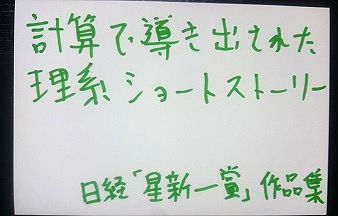 計算で導き出された
理系ショートストーリー
日経「星新一賞」作品集